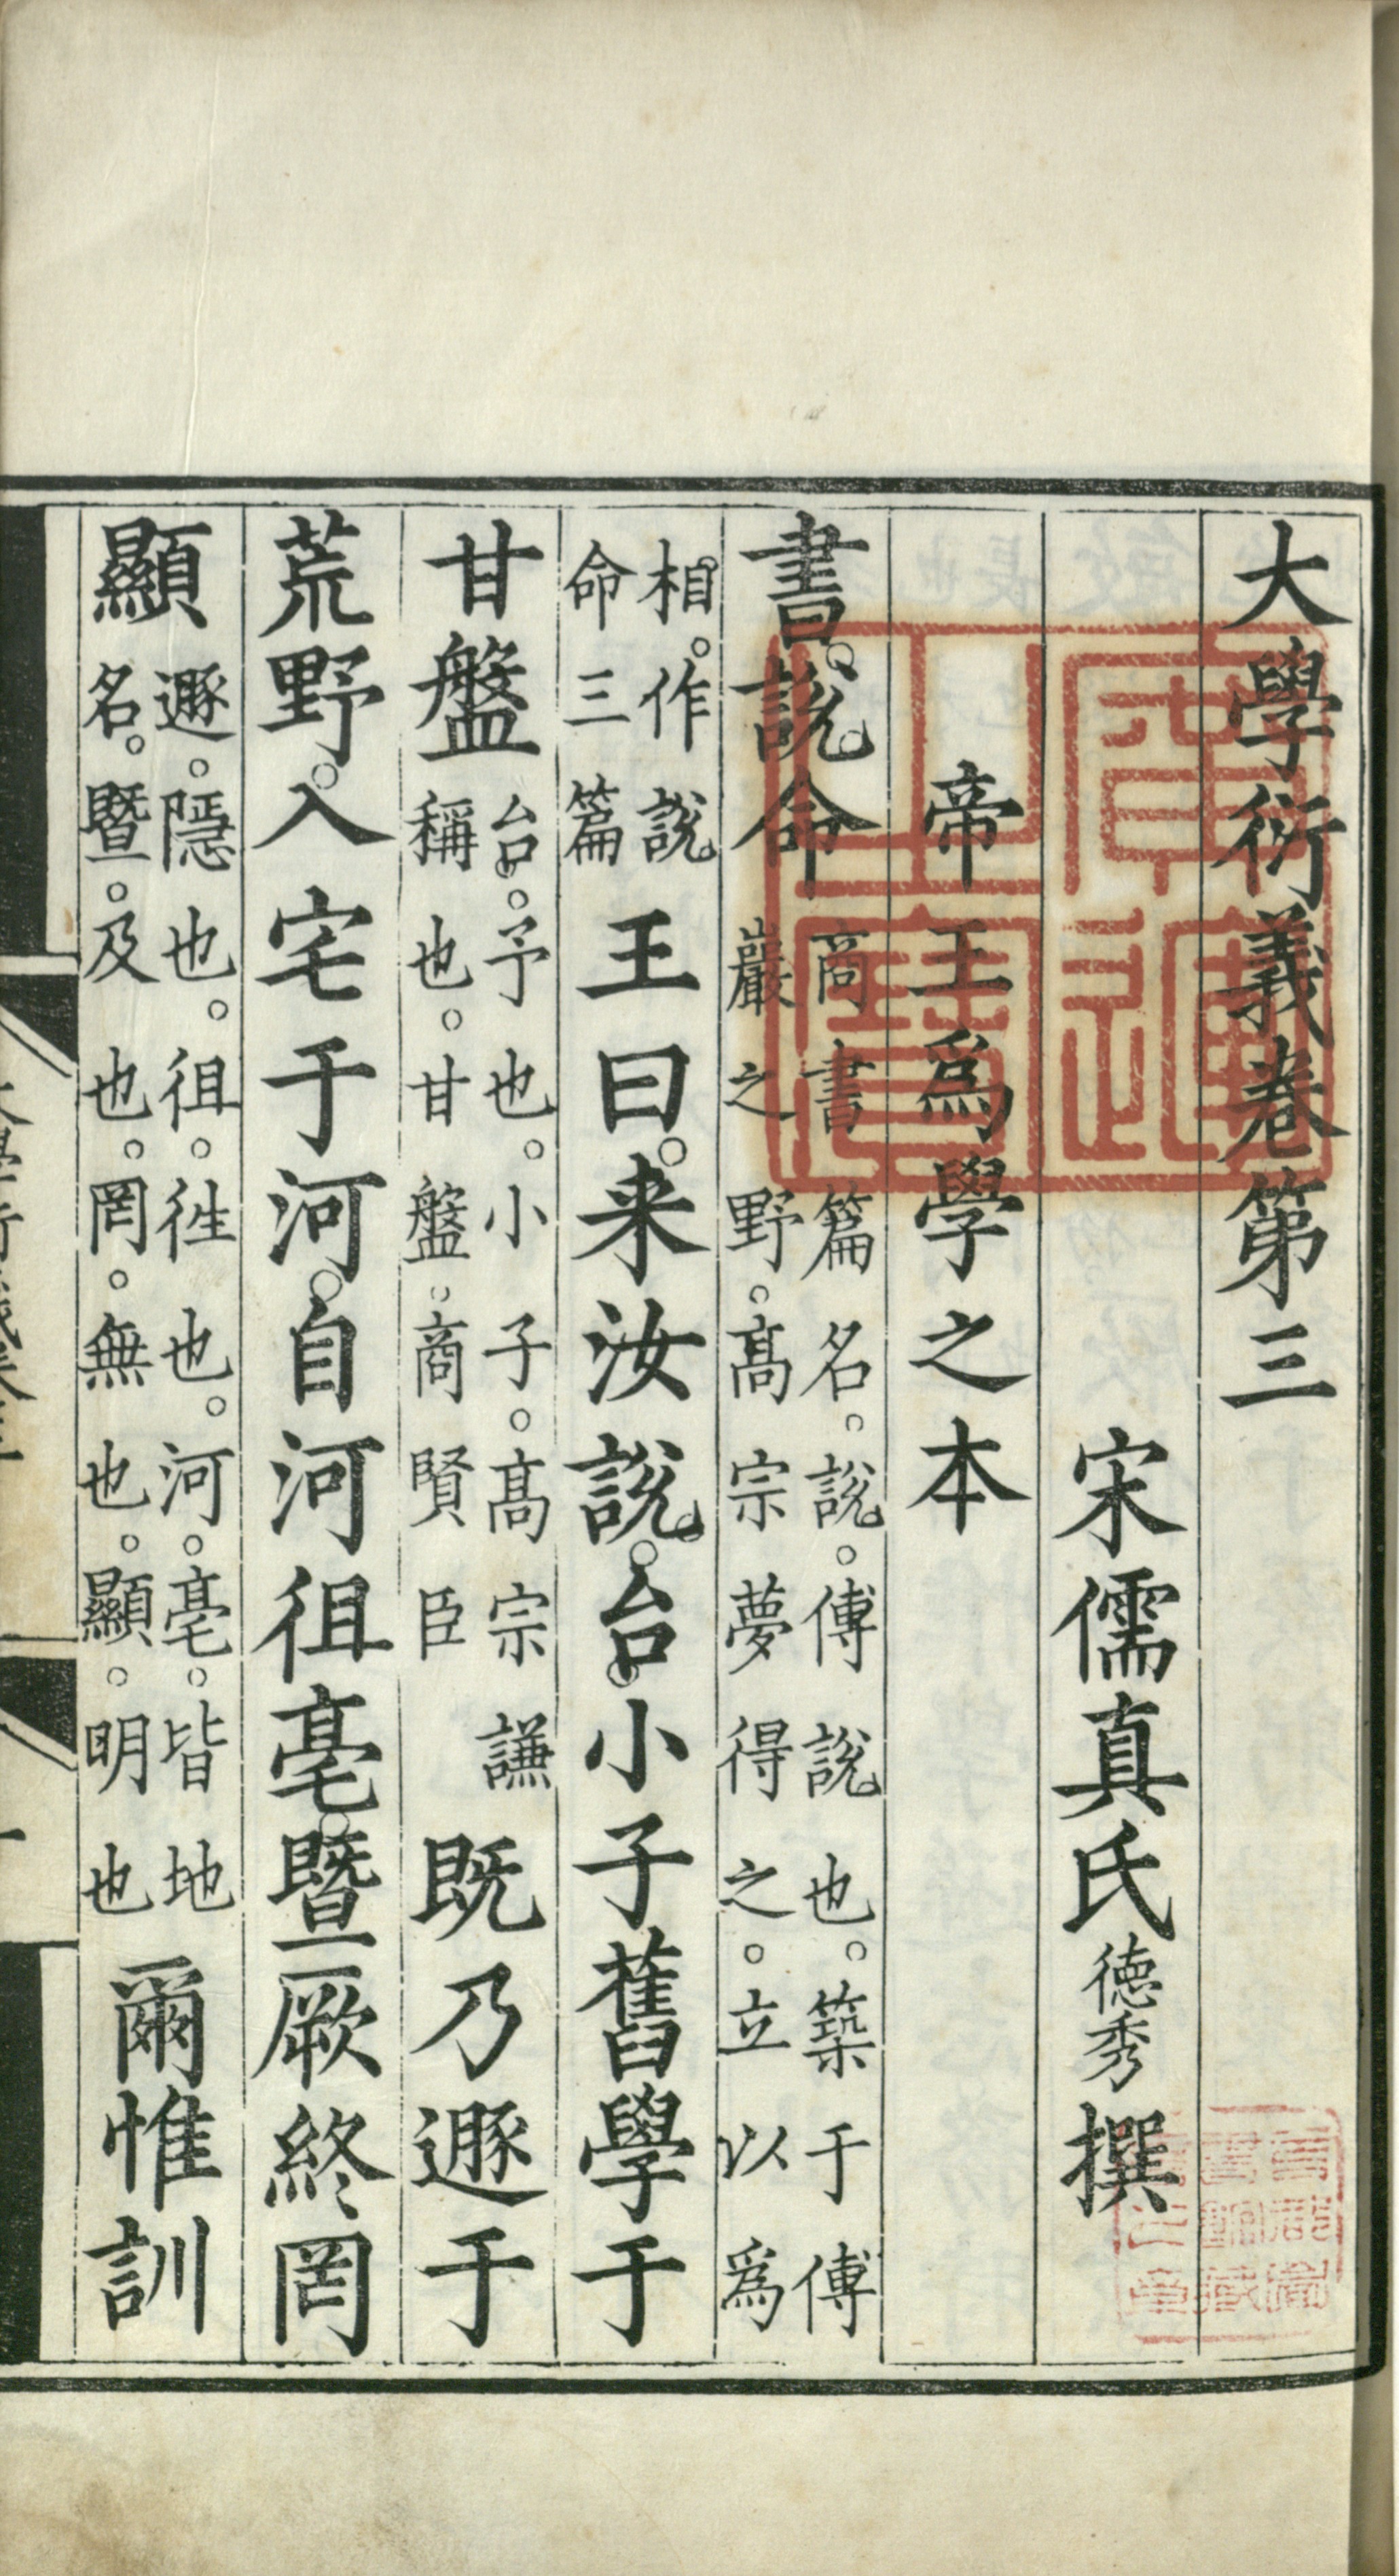 大學衍義卷第三
宋儒真氏德秀撰
帝王爲學之本
書。說命商書篇名。說。傅說也。築于傅巖之野。髙宗夢得之。立以爲
相。作說命三篇王曰。来汝說。台小子舊學于
甘盤台。予也。小子。髙宗謙稱也。甘盤。商賢臣既乃遯于
荒野。入宅于河。自河徂亳。暨厥終罔
顯遯。隱也。徂。徃也。河。亳。皆地名。暨。及也。罔。無也。顯。明也爾惟訓